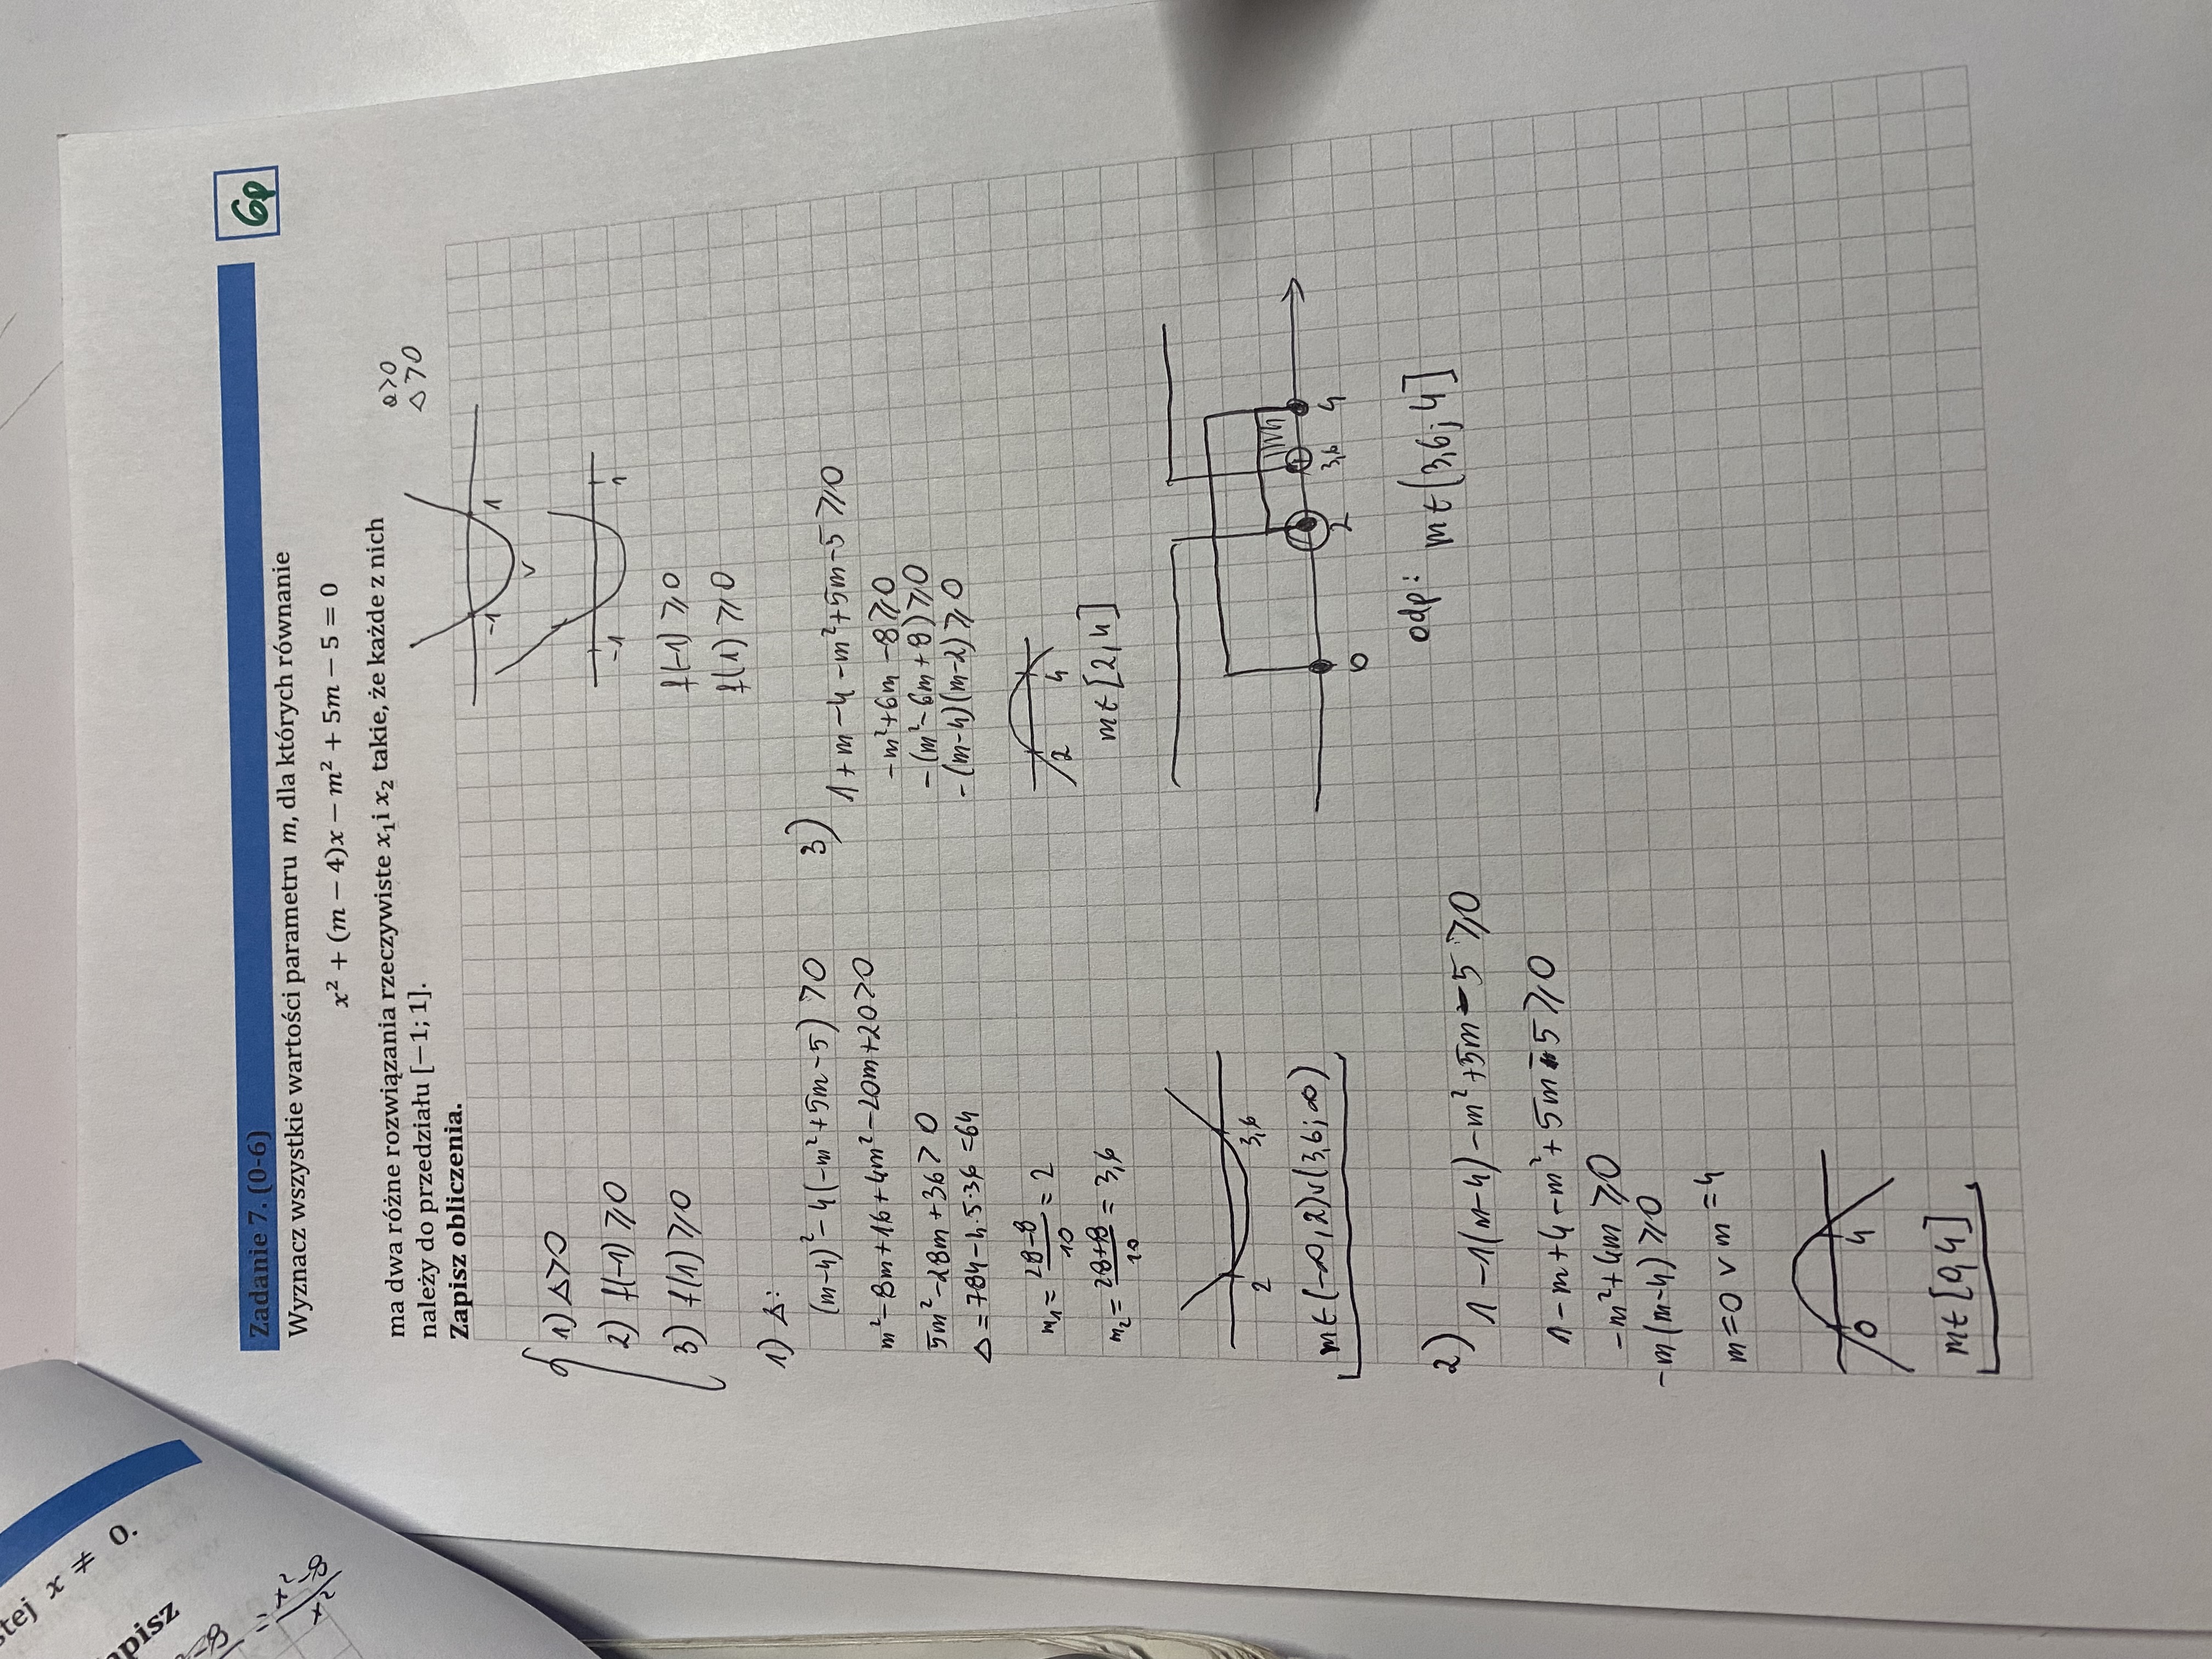 Zadanie 7. (0-6)
6p
Wyznacz wszystkie wartości parametru m, dla których równanie
x² + (m − 4)x − m² + 5m − 5 = 0
ma dwa różne rozwiązania rzeczywiste x₁ i x₂ takie, że każde z nich
należy do przedziału [−1; 1].
Zapisz obliczenia.
a>0
Δ>0
-1 1
v
-1 1
f(-1) ⩾0
f(1) ⩾0
1) Δ>0
2) f(-1) ⩾0
3) f(1) ⩾0
1) Δ:
(m-4)² - 4(-m²+5m-5) >0
m²-8m+16+4m²-20m+20>0
5m²-28m+36>0
Δ=784-4·5·36=64
m₁=28-8/10=2
m₂=28+8/10=3,6
2 3,6
m∈(-∞,2)∪(3,6;∞)
3)
1+m-4-m²+5m-5⩾0
-m²+6m-8⩾0
-(m²-6m+8)⩾0
-(m-4)(m-2)⩾0
2 4
m∈[2,4]
0 2 3,6 4
odp: m∈(3,6;4]
2)
1-1(m-4)-m²+5m-5⩾0
1-m+4-m²+5m-5⩾0
-m²+4m⩾0
-m(m-4)⩾0
m=0 v m=4
0 4
m∈[0,4]
stej x ≠ 0.
apisz
-8
=x²-8/x²